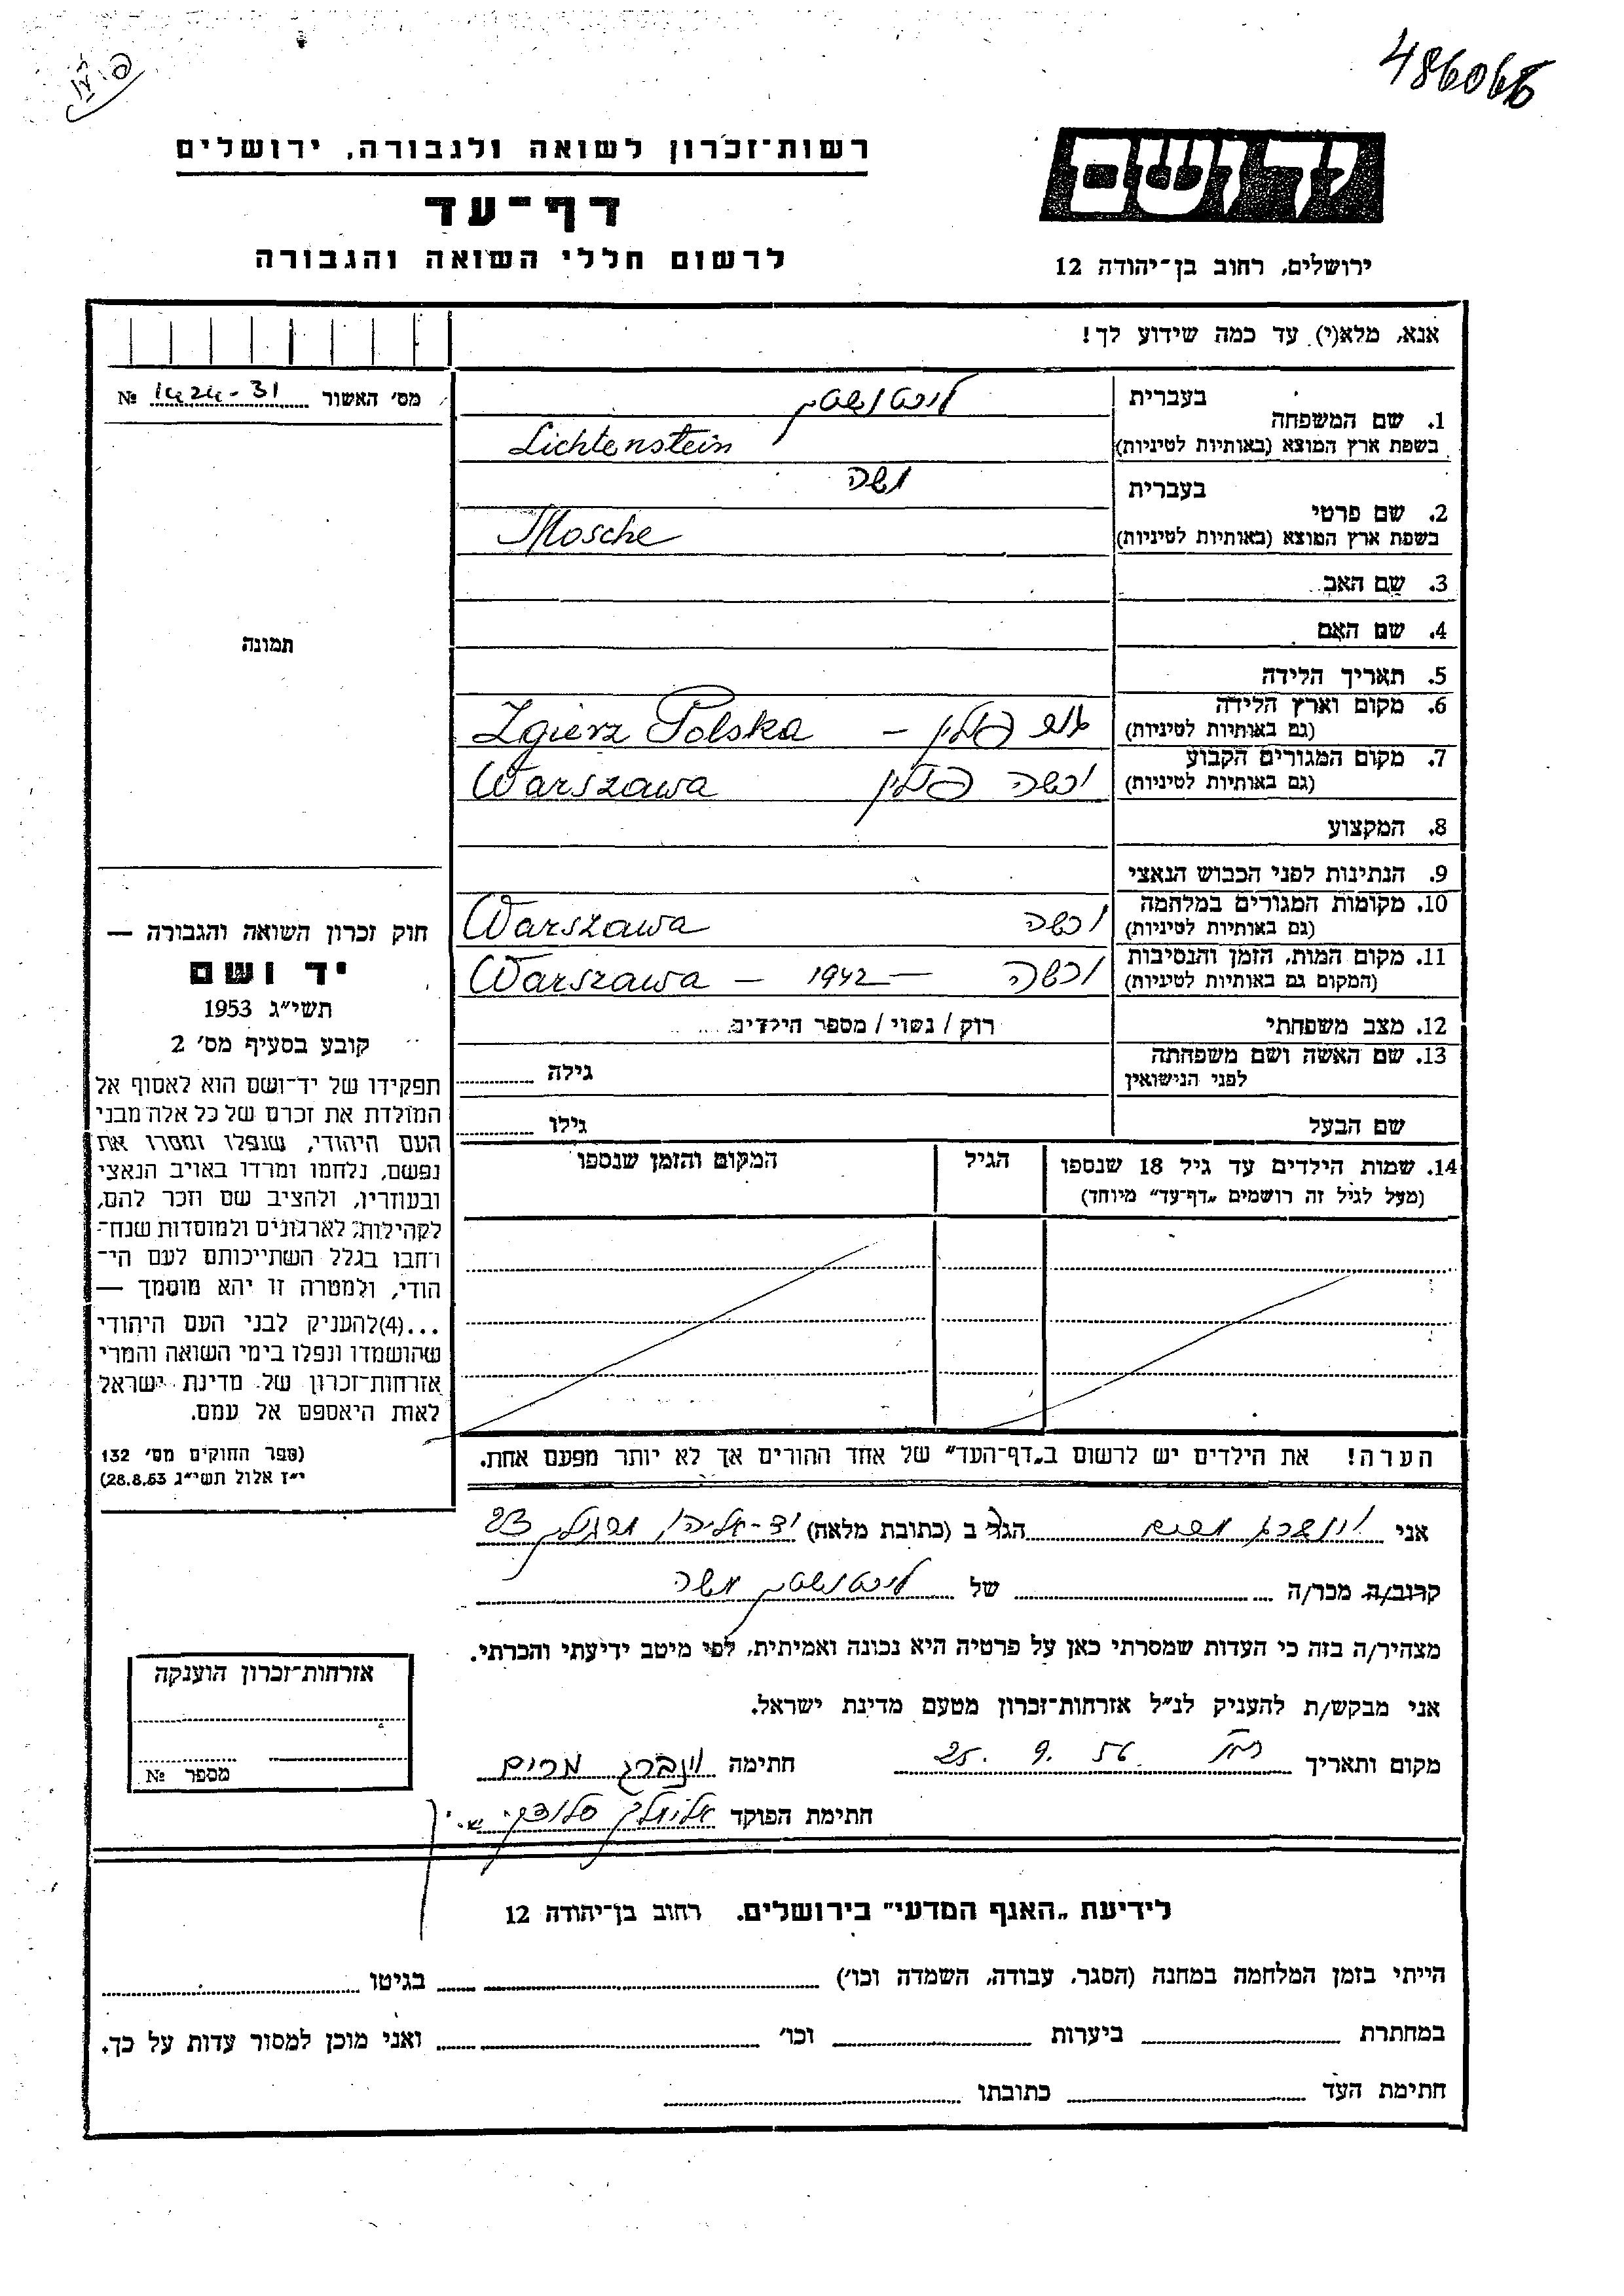 486066
רשות־זכרון לשואה ולגבורה, ירושלים
דף־עד
לרשום חללי השואה והגבורה
יד ושם
ירושלים, רחוב בן־יהודה 12
אנא, מלא(י) עד כמה שידוע לך!
מס׳ האשור 1424-31 №
תמונה
1. שם המשפחה
בעברית ליכטנשטין
בשפת ארץ המוצא (באותיות לטיניות) Lichtenstein
2. שם פרטי
בעברית משה
בשפת ארץ המוצא (באותיות לטיניות) Mosche
3. שם האב
4. שם האם
5. תאריך הלידה
6. מקום וארץ הלידה
(גם באותיות לטיניות) פולין – Zgierz Polska
7. מקום המגורים הקבוע
(גם באותיות לטיניות) ורשה פולין Warszawa
8. המקצוע
9. הנתינות לפני הכבוש הנאצי
10. מקומות המגורים במלחמה
(גם באותיות לטיניות) ורשה Warszawa
11. מקום המות, הזמן והנסיבות
(המקום גם באותיות לטיניות) ורשה – 1942 – Warszawa
12. מצב משפחתי רוק / נשוי / מספר הילדים
13. שם האשה ושם משפחתה
לפני הנישואין גילה
שם הבעל גילו
14. שמות הילדים עד גיל 18 שנספו הגיל המקום והזמן שנספו
(מעל לגיל זה רושמים „דף־עד״ מיוחד)
הערה! את הילדים יש לרשום ב„דף־העד״ של אחד ההורים אך לא יותר מפעם אחת.
חוק זכרון השואה והגבורה —
יד ושם
תשי״ג 1953
קובע בסעיף מס׳ 2
תפקידו של יד־ושם הוא לאסוף אל
המולדת את זכרם של כל אלה מבני
העם היהודי, שנפלו ומסרו את
נפשם, נלחמו ומרדו באויב הנאצי
ובעוזריו, ולהציב שם וזכר להם,
לקהילות, לארגונים ולמוסדות שנח־
רחבו בגלל השתייכותם לעם הי־
הודי, ולמטרה זו יהא מוסמך —
...(4)להעניק לבני העם היהודי
שהושמדו ונפלו בימי השואה והמרי
אזרחות־זכרון של מדינת ישראל
לאות היאספם אל עמם.
(ספר החוקים מס׳ 132
י״ז אלול תשי״ג 28.8.53)
אני מרים הגר ב (כתובת מלאה) יד-אליהו 23
קרוב/ה מכר/ה של ליכטנשטין משה
מצהיר/ה בזה כי העדות שמסרתי כאן על פרטיה היא נכונה ואמיתית, לפי מיטב ידיעתי והכרתי.
אני מבקש/ת להעניק לנ״ל אזרחות־זכרון מטעם מדינת ישראל.
מקום ותאריך 25. 9. 56 חתימה וינברג מרים
חתימת הפוקד אלימלך
אזרחות־זכרון הוענקה
מספר №
לידיעת „האגף המדעי״ בירושלים. רחוב בן־יהודה 12
הייתי בזמן המלחמה במחנה (הסגר, עבודה, השמדה וכו׳) בגיטו
במחתרת ביערות וכו׳ ואני מוכן למסור עדות על כך.
חתימת העד כתובתו